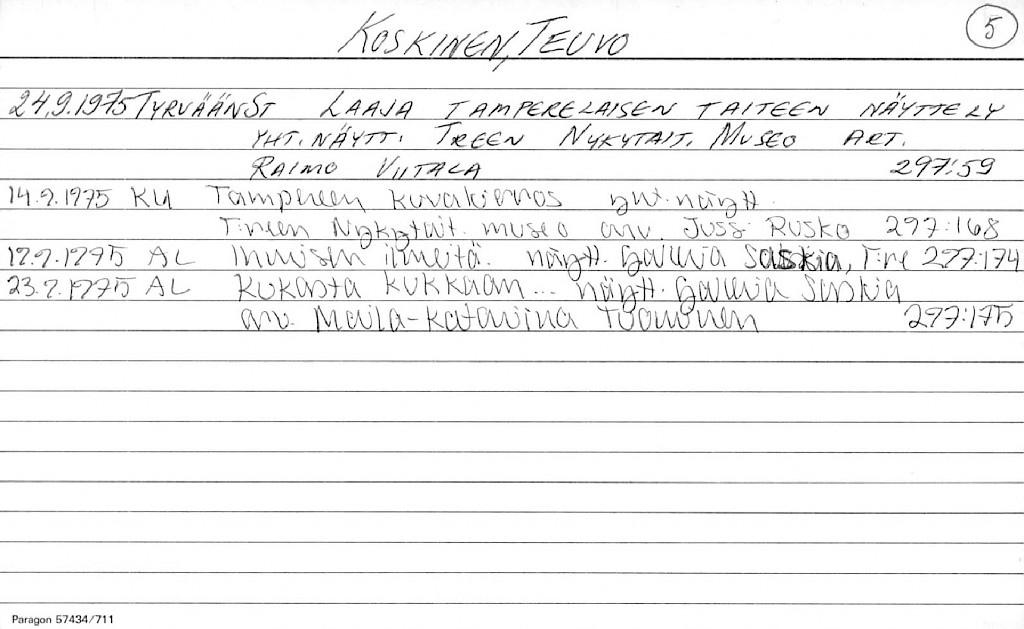 KOSKINEN, TEUVO
5
24.9.1975 TYRVÄÄNST LAAJA TAMPERELAISEN TAITEEN NÄYTTELY
YHT. NÄYTT. TREEN NYKYTAIT. MUSEO ART.
RAIMO VIITALA 297:59
14.9.1975 KU Tampereen kuvakierros yht.näytt.
T:reen Nykytait. museo arv. Jussi Rusko 297:168
17.9.1975 AL Ihmisen ilmeitä. näytt. Galleria Saskia, T:re 297:174
23.9.1975 AL Kukasta kukkaan... näytt. Galleria Saskia
arv. Maila-Katariina Tuominen 297:175
Paragon 57434/711